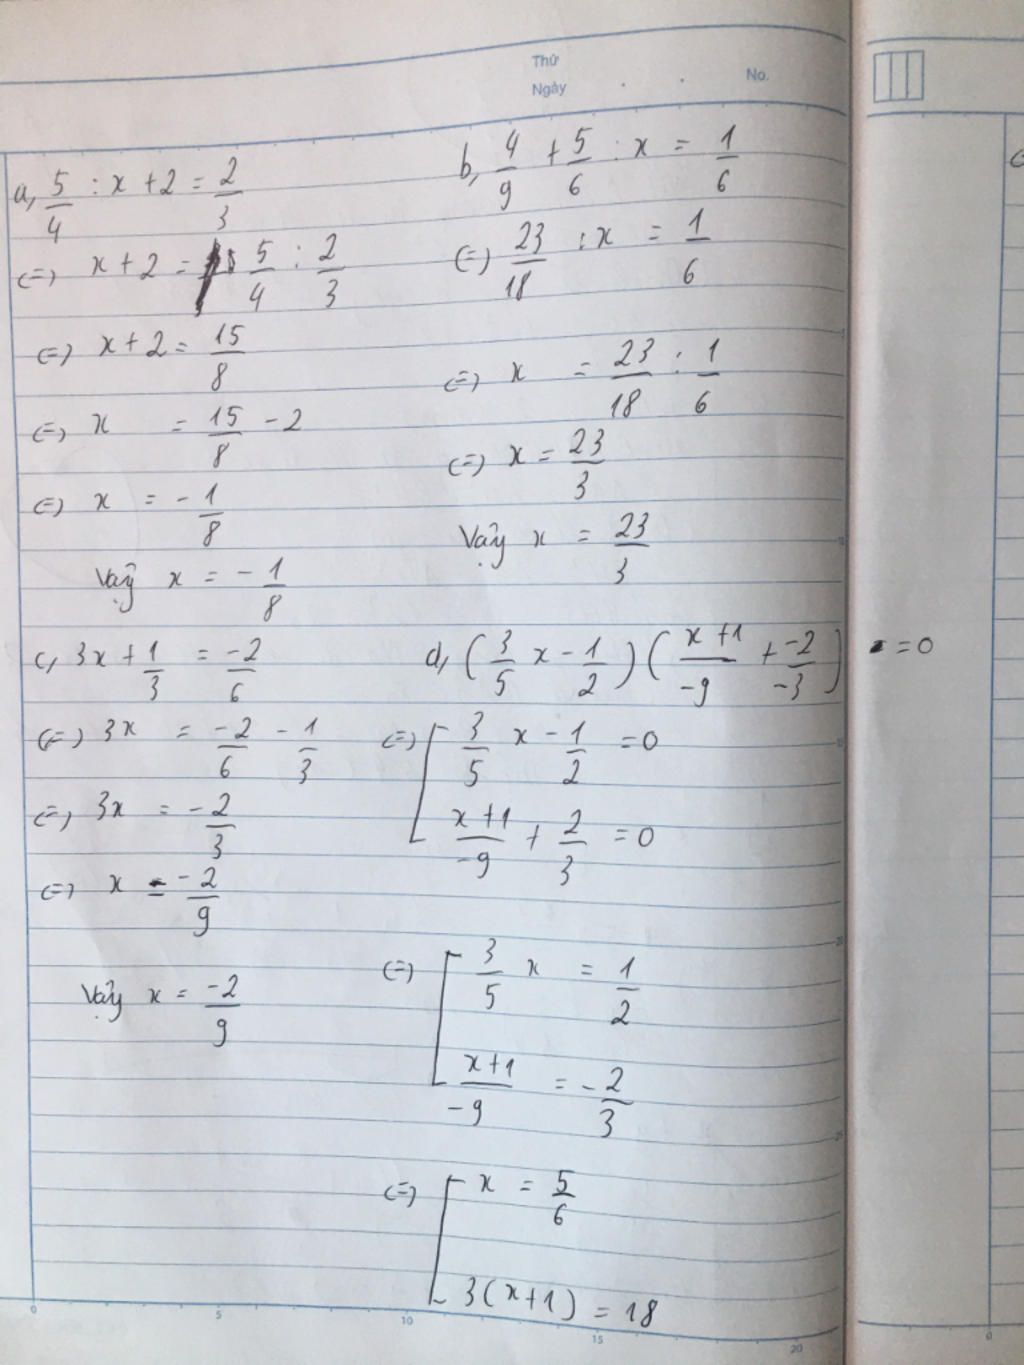 Thứ
Ngày . . No.
a, 5/4 : x + 2 = 2/3
(=) x + 2 = 5/4 : 2/3
(=) x + 2 = 15/8
(=) x = 15/8 - 2
(=) x = - 1/8
Vậy x = - 1/8
b, 4/9 + 5/6 : x = 1/6
(=) 23/18 : x = 1/6
(=) x = 23/18 : 1/6
(=) x = 23/3
Vậy x = 23/3
c, 3x + 1/3 = -2/6
(=) 3x = -2/6 - 1/3
(=) 3x = - 2/3
(=) x = -2/9
Vậy x = -2/9
d, (3/5 x - 1/2)(x+1/-9 + -2/-3) = 0
(=) [ 3/5 x - 1/2 = 0
x+1/-9 + 2/3 = 0
(=) [ 3/5 x = 1/2
x+1/-9 = - 2/3
(=) [ x = 5/6
3(x+1) = 18
0 5 10 15 20
0